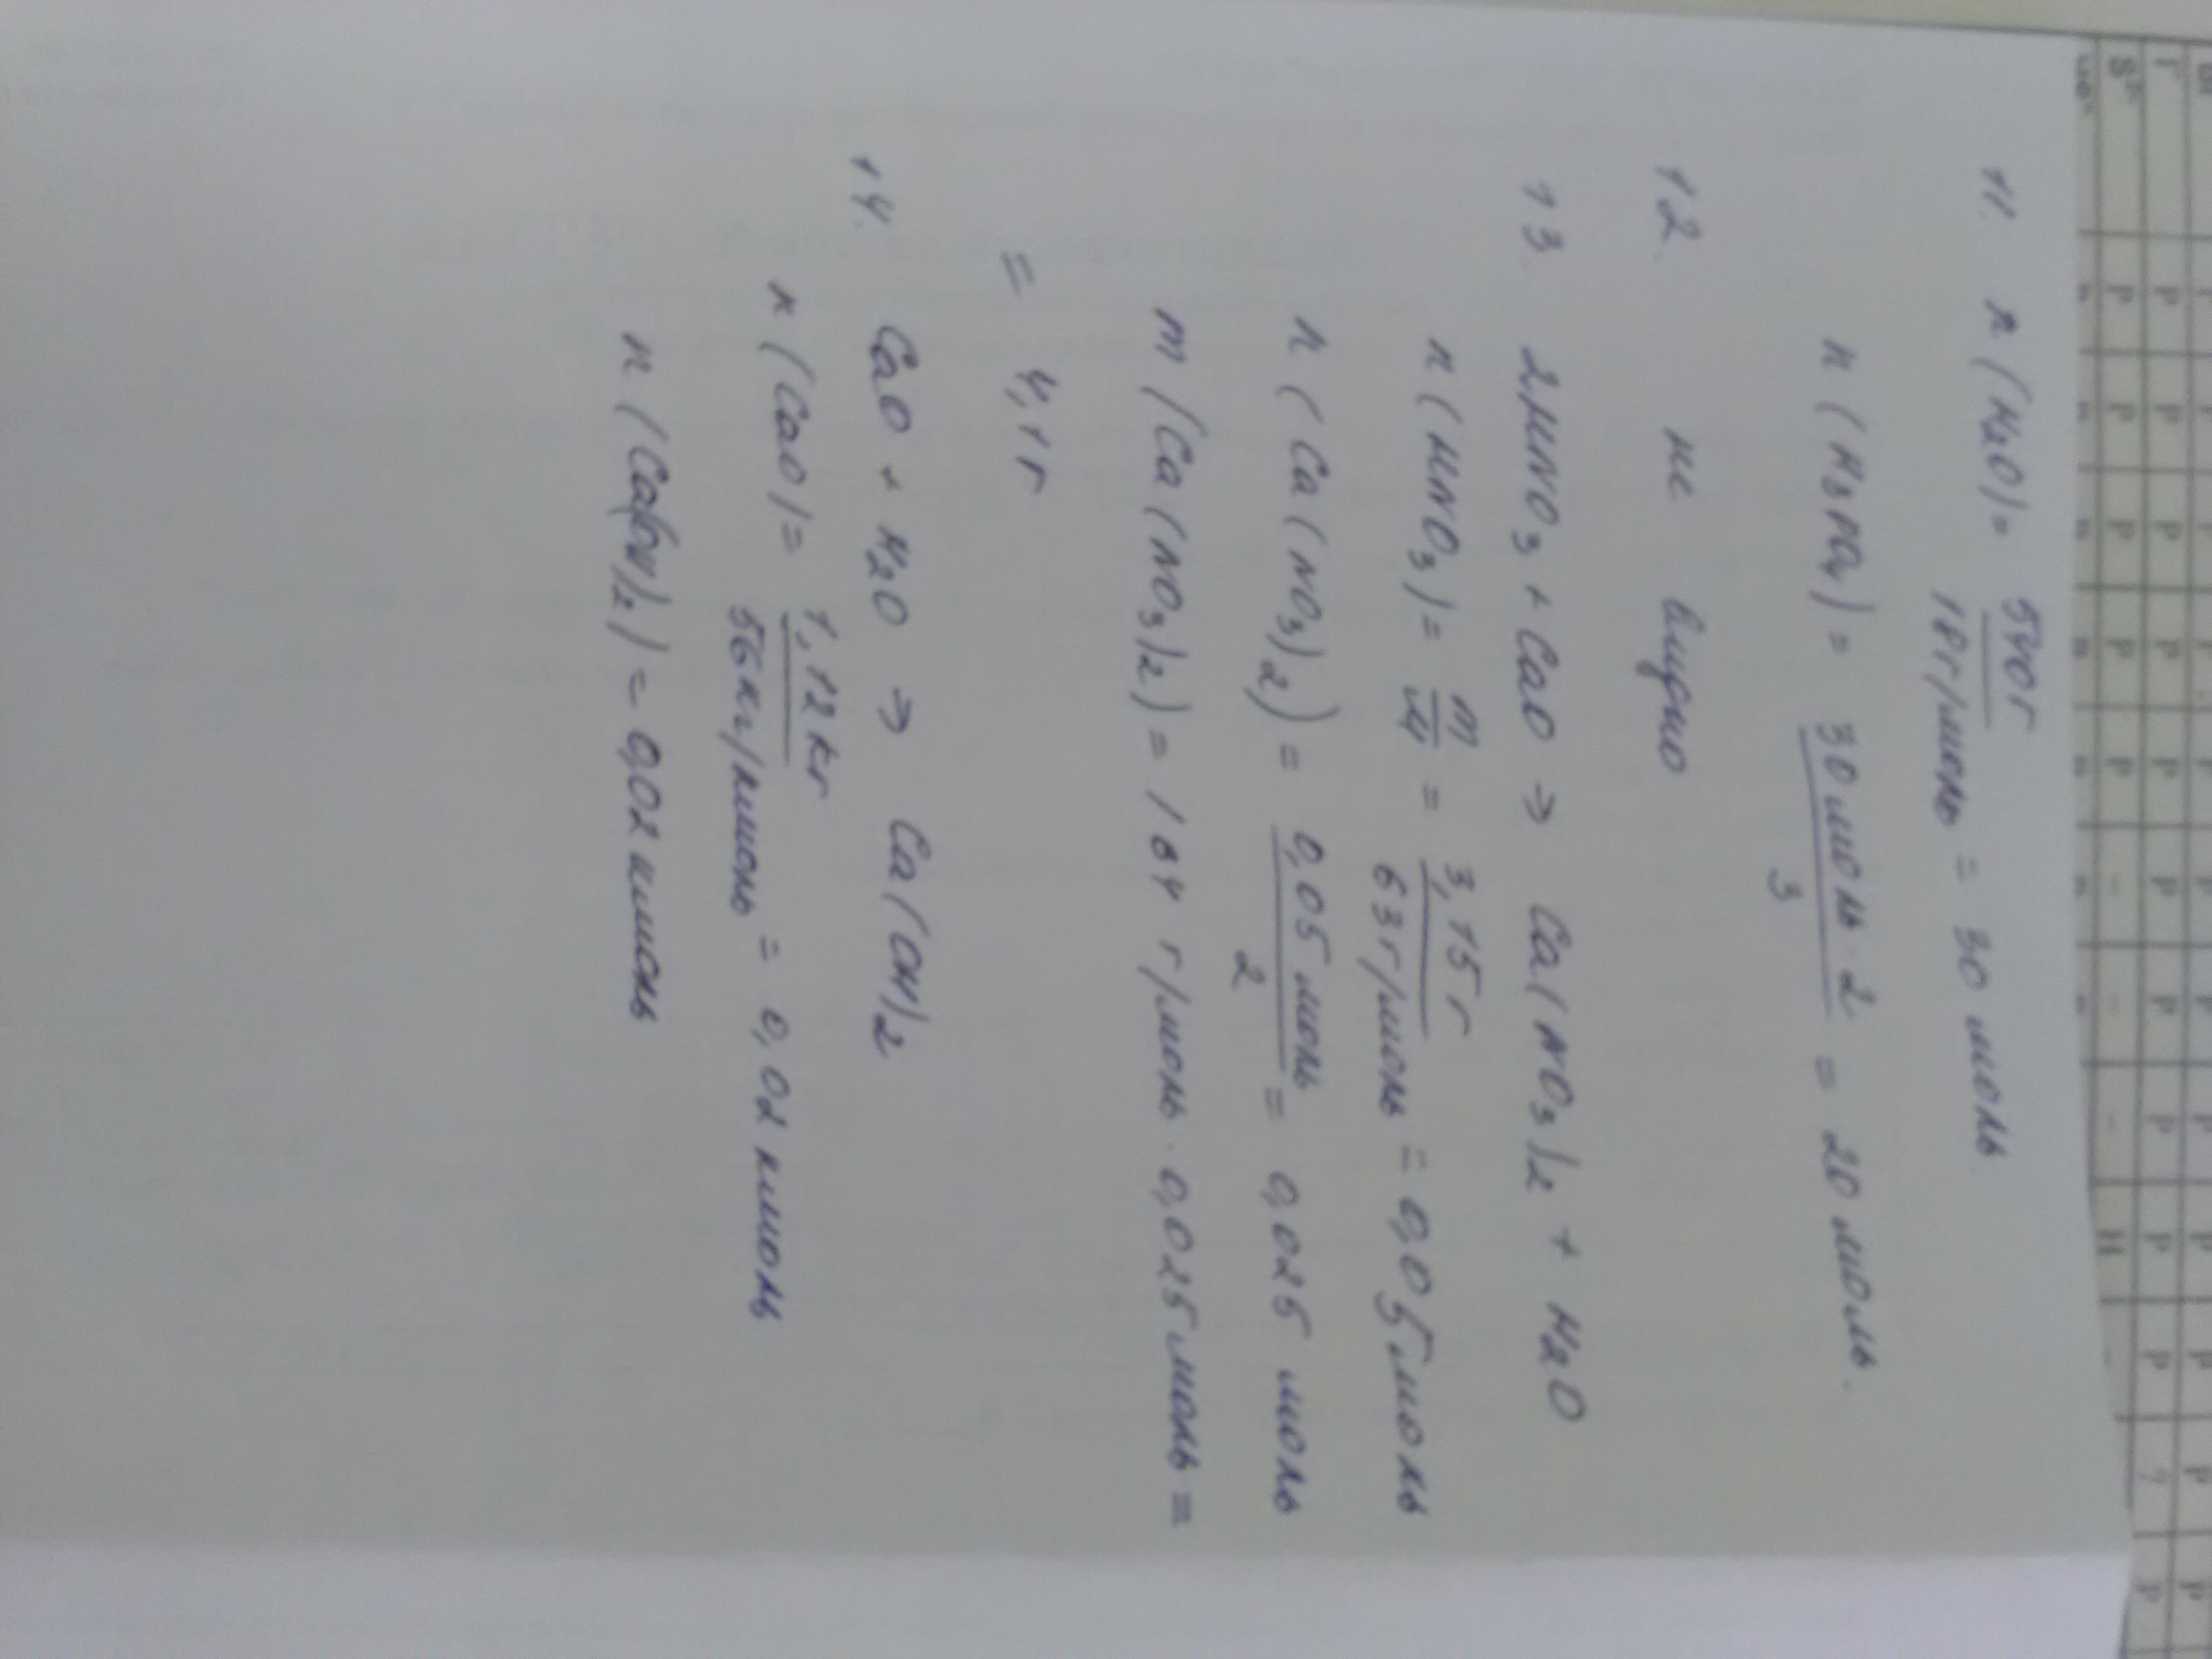 11. n(H₂O) = 540г / 18г/моль = 30 моль
n(H₃PO₄) = 30 моль·2 / 3 = 20 моль.
12. не видно
13. 2HNO₃ + CaO → Ca(NO₃)₂ + H₂O
n(HNO₃) = m/M = 3,15г / 63г/моль = 0,05 моль
n(Ca(NO₃)₂) = 0,05 моль / 2 = 0,025 моль
m(Ca(NO₃)₂) = 164 г/моль · 0,025 моль =
= 4,1 г
14. CaO + H₂O → Ca(OH)₂
n(CaO) = 1,12 кг / 56 кг/кмоль = 0,02 кмоль
n(Ca(OH)₂) = 0,02 кмоль